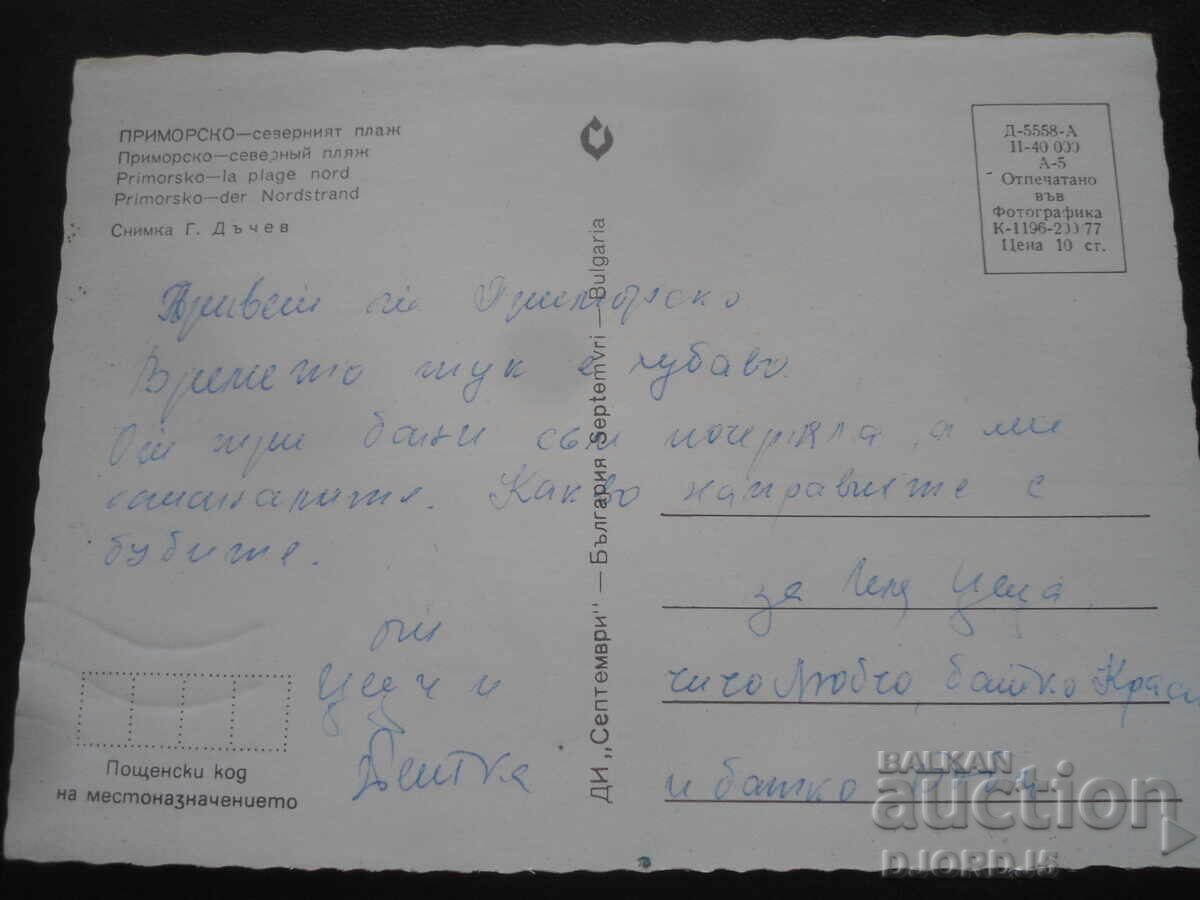 ПРИМОРСКО—северният плаж
Приморско—северный пляж
Primorsko—la plage nord
Primorsko—der Nordstrand
Снимка Г. Дъчев
Д-5558-А
11-40 000
А-5
Отпечатано
във
Фотографика
К-1196-200/77
Цена 10 ст.
ДИ „Септември" — България Septemvri — Bulgaria
Привет от Приморско
Времето тук е хубаво.
От три бани съм почерняла, а ми
Какво направихте с
бубите.
от
и
Цеца,
за леля
чичо Любчо, батко Краси
и батко
Пощенски код
на местоназначението
BALKAN
auction
DJORDJ5